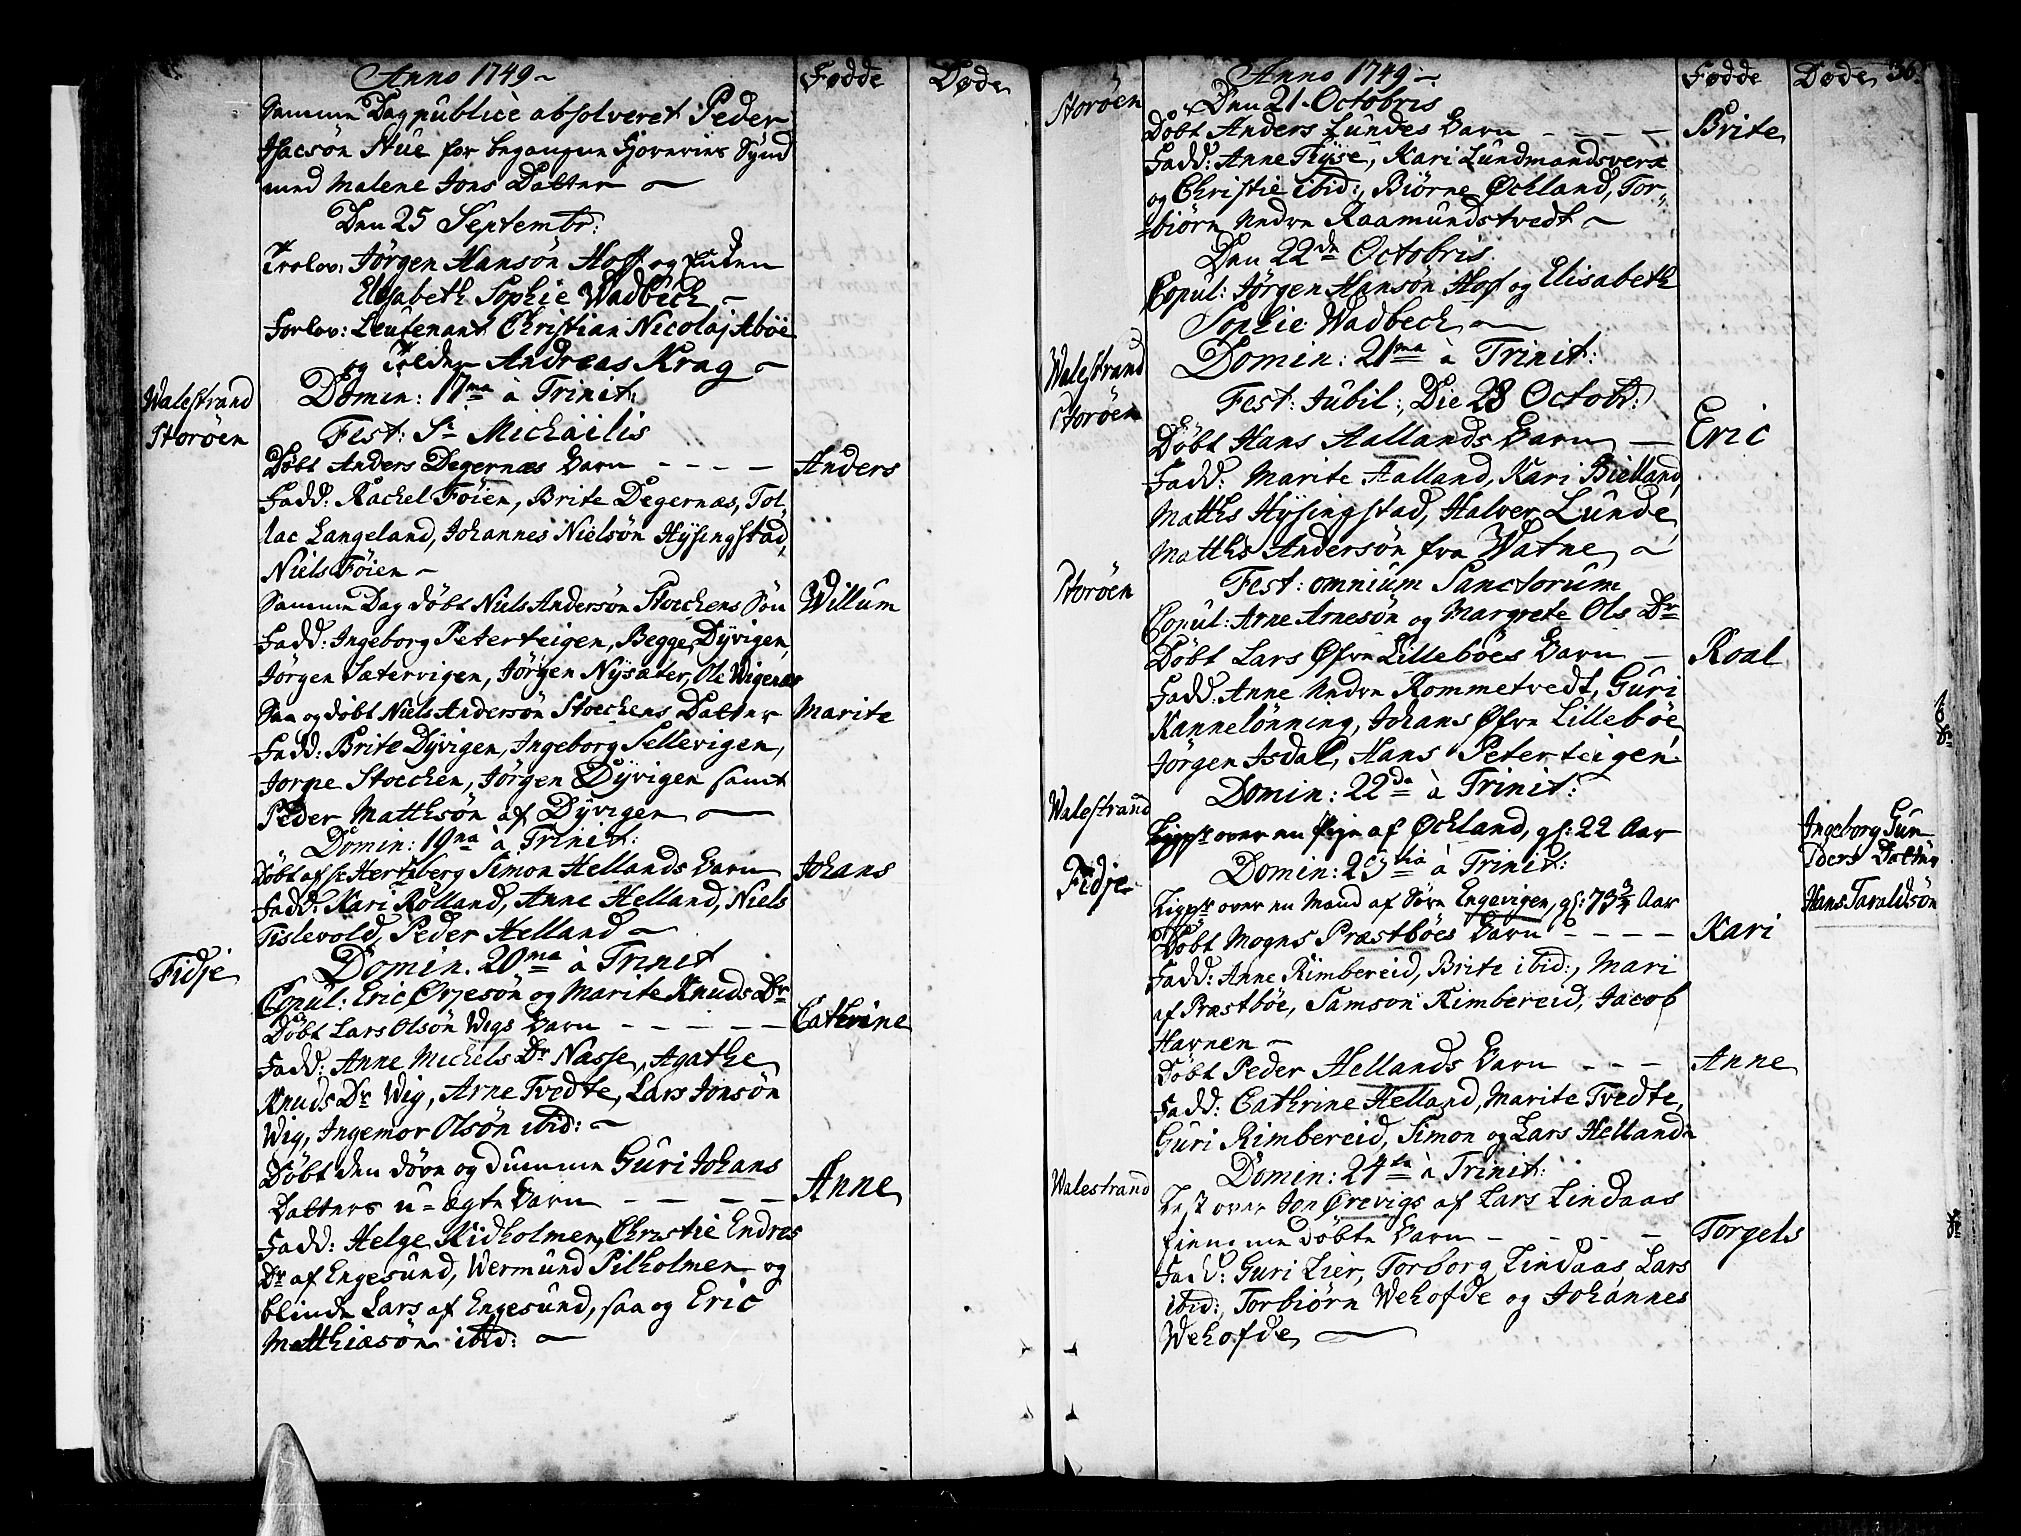 Anno 1749 ~
Fødde
Døde
Samme Dag publicè absolveret Peder
Isacsön Stue for begangne Hoveries Synd
med Malene Jons Datter ~
Den 25 Septembr:
Trolov: Jörgen Hansön Hoff og
Elisabeth Sophie Wadbech ~
Forlov: Leutenant Christian Nicolaj Aböe
og Andreas Krag ~
Walestrand
Domin: 17ma à Trinit:
Storöen
Fest: St Michaëlis
Döbt Anders Degernæs Barn - - - -
Anders
Fadd: Rachel Föien, Brite Degernæs, Tol-
lac Langeland, Johannes Nielsön Hysingstad,
Niels Föien ~
Samme Dag döbt Niels Andersön Stoechens Sön
Willum
Fadd: Ingeborg Peterteigen, Begge Dyvigen,
Jörgen Sætervigen, Jörgen Nysæter, Ole Wigenæs
Saa og döbt Niels Andersön Stoechens Datter
Marite
Fadd: Brite Dyvigen, Ingeborg Sellevigen,
Jorgie Stoechen, Jörgen Dyvigen samt
Peder Matthisön af Dyvigen ~
Domin: 19na à Trinit:
Döbt af Hr Hertzberg Simon Hellands Barn
Johans
Fadd: Kari Rölland, Anne Helland, Niels
Tislevold, Peder Helland ~
Fidje
Domin. 20ma à Trinit
Copul: Eric Örjesön og Marite Knuds Dr
Döbt Lars Olsön Wigs Barn - - - - -
Cathrine
Fadd: Anne Michels Dr Nasse, Agathe
Knuds Dr Wig, Arne Tvedte, Lars Jonsön
Wig, Ingemor Olsön ibid: ~
Döbt den döve og dumme Guri Johans
Datters u-ægte Barn - - - -
Anne
Fadd: Helge Kidholmen, Christie Endres
Dr af Engesund, Wermund Pilholmen og
blinde Lars af Engesund, saa og Eric
Matthiasön ibid: ~
Anno 1749 ~
Fødde
Døde
36.
Storöen
Den 21. Octobris
Döbt Anders Lundes Barn - - - -
Brite
Fadd: Anne Tyse, Kari Lundmandsverc
og Christie ibid:, Biörne Öchland, Tor-
biörn Nedre Raamundstvedt ~
Den 22de Octobris
Copul: Jörgen Hansön Hof og Elisabeth
Sophie Wadbech ~
Walestrand
Domin: 21ma à Trinit:
Storöen
Fest: Jubil:, Die 28 Octobr:
Döbt Hans Aallands Barn -
Eric
Fadd: Marite Aalland, Kari Bielland,
Matthis Hysingstad, Halver Lunde,
Matthis Andersön fra Watne ~
Storöen
Fest: omnium Sanctorum
Copul: Arne Arnesön og Margrete Ols Dr
Döbt Lars Öfre Lilleböes Barn -
Roal
Fadd: Anne Nedre Rommetvedt, Guri
Kannelönning, Johans Öfre Lilleböe,
Jörgen Isdal, Hans Peterteigen.
Walestrand
Domin: 22da à Trinit:
Ligpr over en Pige af Öchland, gl: 22 Aar
Ingeborg Gun-
ders Datter
Fidje
Domin: 23tia à Trinit:
Ligpr over en Mand af Sörn Engevigen, gl: 73 3/4 Aar
Hans Taraldsön
Döbt Mogns Præstböes Barn - - - -
Kari
Fadd: Anne Rimbereid, Brite ibid:, Mari
af Præstböe, Samson Rimbereid, Jacob
Havnen ~
Döbt Peder Hellands Barn - - -
Anne
Fadd: Cathrine Helland, Marite Tvedte,
Guri Rimbereid, Simon og Lars Helland ~
Walestrand
Domin: 24ta à Trinit:
Lest over Jon Örevigs af Lars Lindaas
hiemmedöbte Barn - - - -
Torgels
Fadd: Guri Lier, Torborg Lindaas, Lars
ibid:, Torbiörn Wehofde og Johannes
Wehofde ~